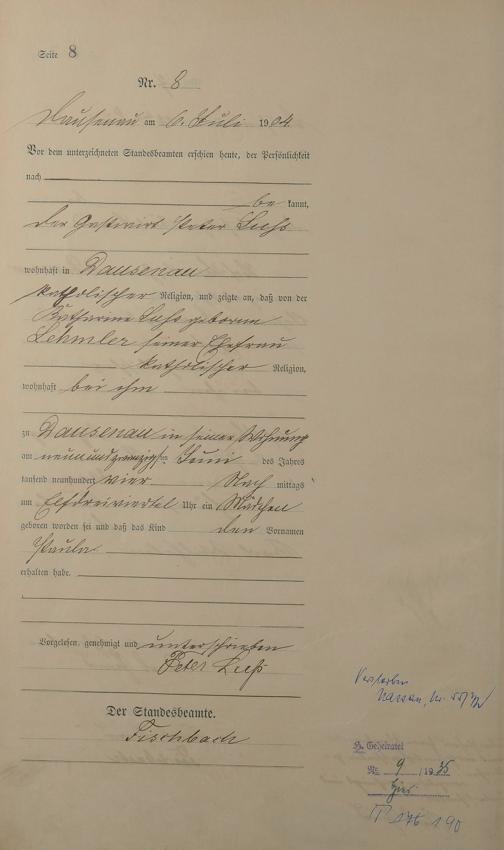 Seite 8
Nr. 8
Dausenau am 6. Juli 1904.
Vor dem unterzeichneten Standesbeamten erschien heute, der Persönlichkeit
nach
be kannt,
der Gastwirt Peter
wohnhaft in Dausenau
katholischer Religion, und zeigte an, daß von der
Katharine geborene
Lehmler seiner Ehefrau
katholischer Religion,
wohnhaft bei ihm
zu Dausenau in seiner Wohnung
am neunundzwanzigsten Juni des Jahres
tausend neunhundert vier Nach mittags
um Elfdreiviertel Uhr ein Mädchen
geboren worden sei und daß das Kind den Vornamen
Paula
erhalten habe.
Vorgelesen, genehmigt und unterschrieben
Peter
Der Standesbeamte.
Fischbach
Verstorben
Nassau, Nr.
Geheiratet
Nr. 9 /1935
hier